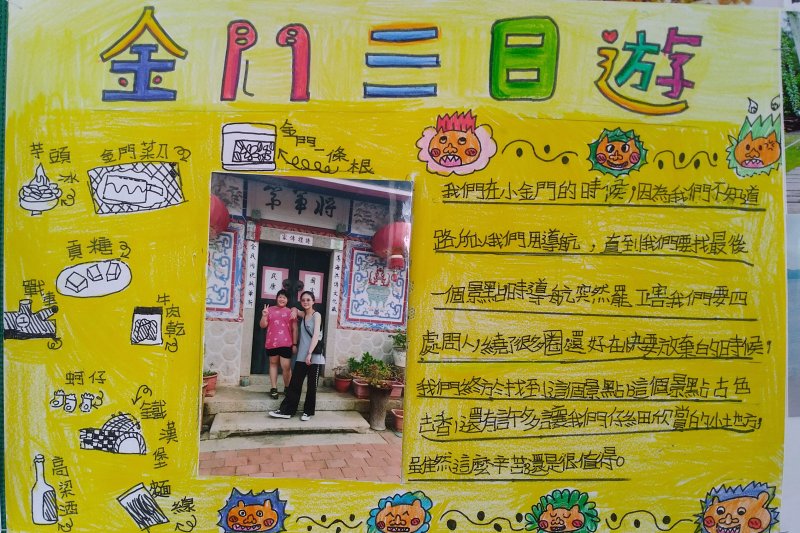 金門三日遊
芋頭冰
金門菜瓜
金門一條根
貢糖
戰車
牛肉乾
蚵仔
鐵漢堡
高梁酒
麵線
將軍第
我們在小金門的時候，因為我們不知道
路，所以我們用導航，直到我們要找最後
一個景點時導航突然罷工害我們要四
處問人，繞了很多圈還好在快要放棄的時候，
我們終於找到這個景點，這個景點古色
古香，還有許多讓我們仔細欣賞的小地方，
雖然這麼辛苦還是很值得。